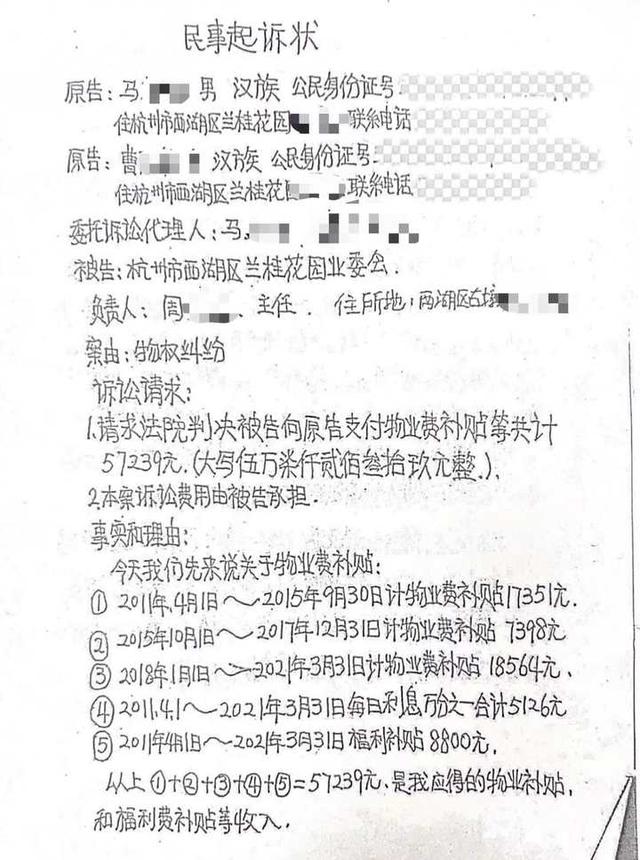 民事起诉状
原告:马 男 汉族 公民身份证号
住杭州市西湖区兰桂花园 联系电话
原告:曹 汉族 公民身份证号
住杭州市西湖区兰桂花园 联系电话
委托诉讼代理人:马
被告:杭州市西湖区兰桂花园业委会.
负责人:周 、主任. 住所地:西湖区古墩
案由:物权纠纷
诉讼请求:
1.请求法院判决被告向原告支付物业费补贴等共计
57239元.(大写伍万柒仟贰佰叁拾玖元整.).
2.本案诉讼费用由被告承担.
事实和理由:
今天我们先来说关于物业费补贴:
① 2011年.4月1日~2015年9月30日计物业费补贴17351元.
② 2015年10月1日~2017年12月31日计物业费补贴 7398元
③ 2018年1月1日~2021年3月31日计物业费补贴 18564元.
④ 2011.4.1~2021年3月31日每日利息万分之一合计5126元
⑤ 2011年4月1日~2021年3月31日福利补贴8800元.
以上①+②+③+④+⑤=57239元.是我应得的物业补贴,
和福利费补贴等收入.